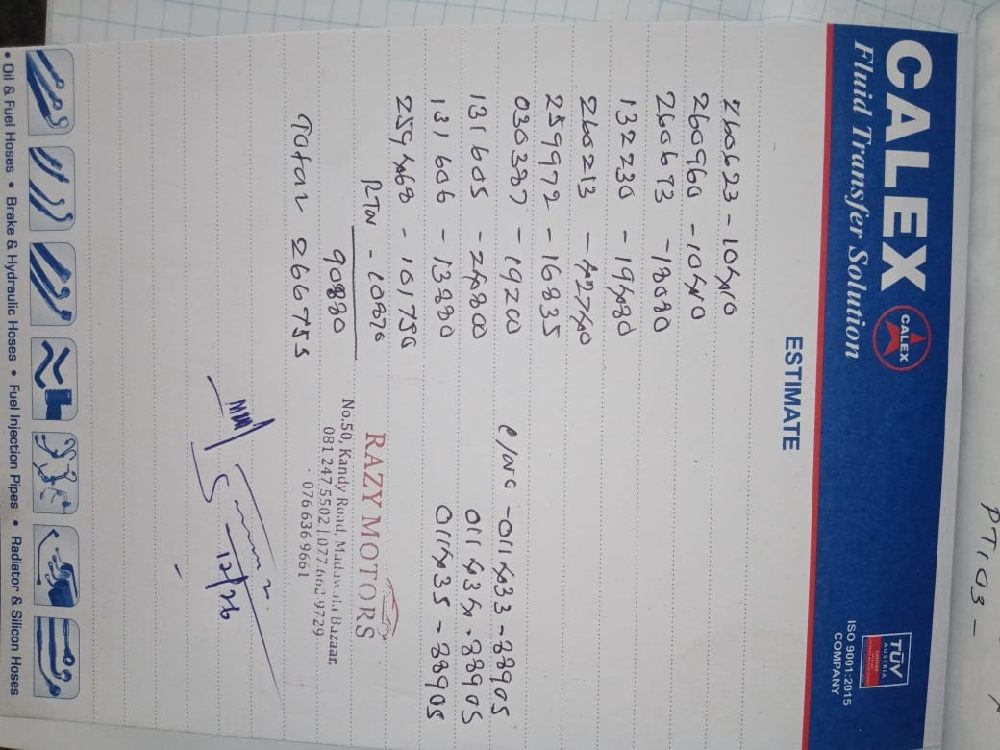 PT103 -
CALEX
CALEX
Fluid Transfer Solution
TÜV
AUSTRIA
ISO 9001:2015
COMPANY
ESTIMATE
260623 - 10410
260960 - 10410
260673 - 18080
132230 - 19480
260213 - 42740
259972 - 16835
030387 - 19200 c/no - 011433 - 88905
131605 - 24800 011434 - 88905
131606 - 13880 011435 - 88905
259468 - 101750
RTN - 10870
90880
Total 266715
RAZY MOTORS
No.50, Kandy Road, Madawala Bazaar.
081 247 5502 | 077 662 9729
076 636 9661
12/26
• Oil & Fuel Hoses • Brake & Hydraulic Hoses • Fuel Injection Pipes • Radiator & Silicon Hoses